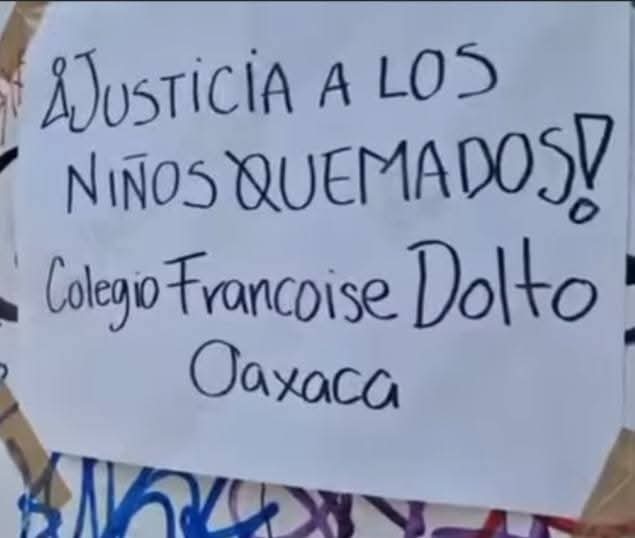 ¡JUSTICIA A LOS
NIÑOS QUEMADOS!
Colegio Francoise Dolto
Oaxaca